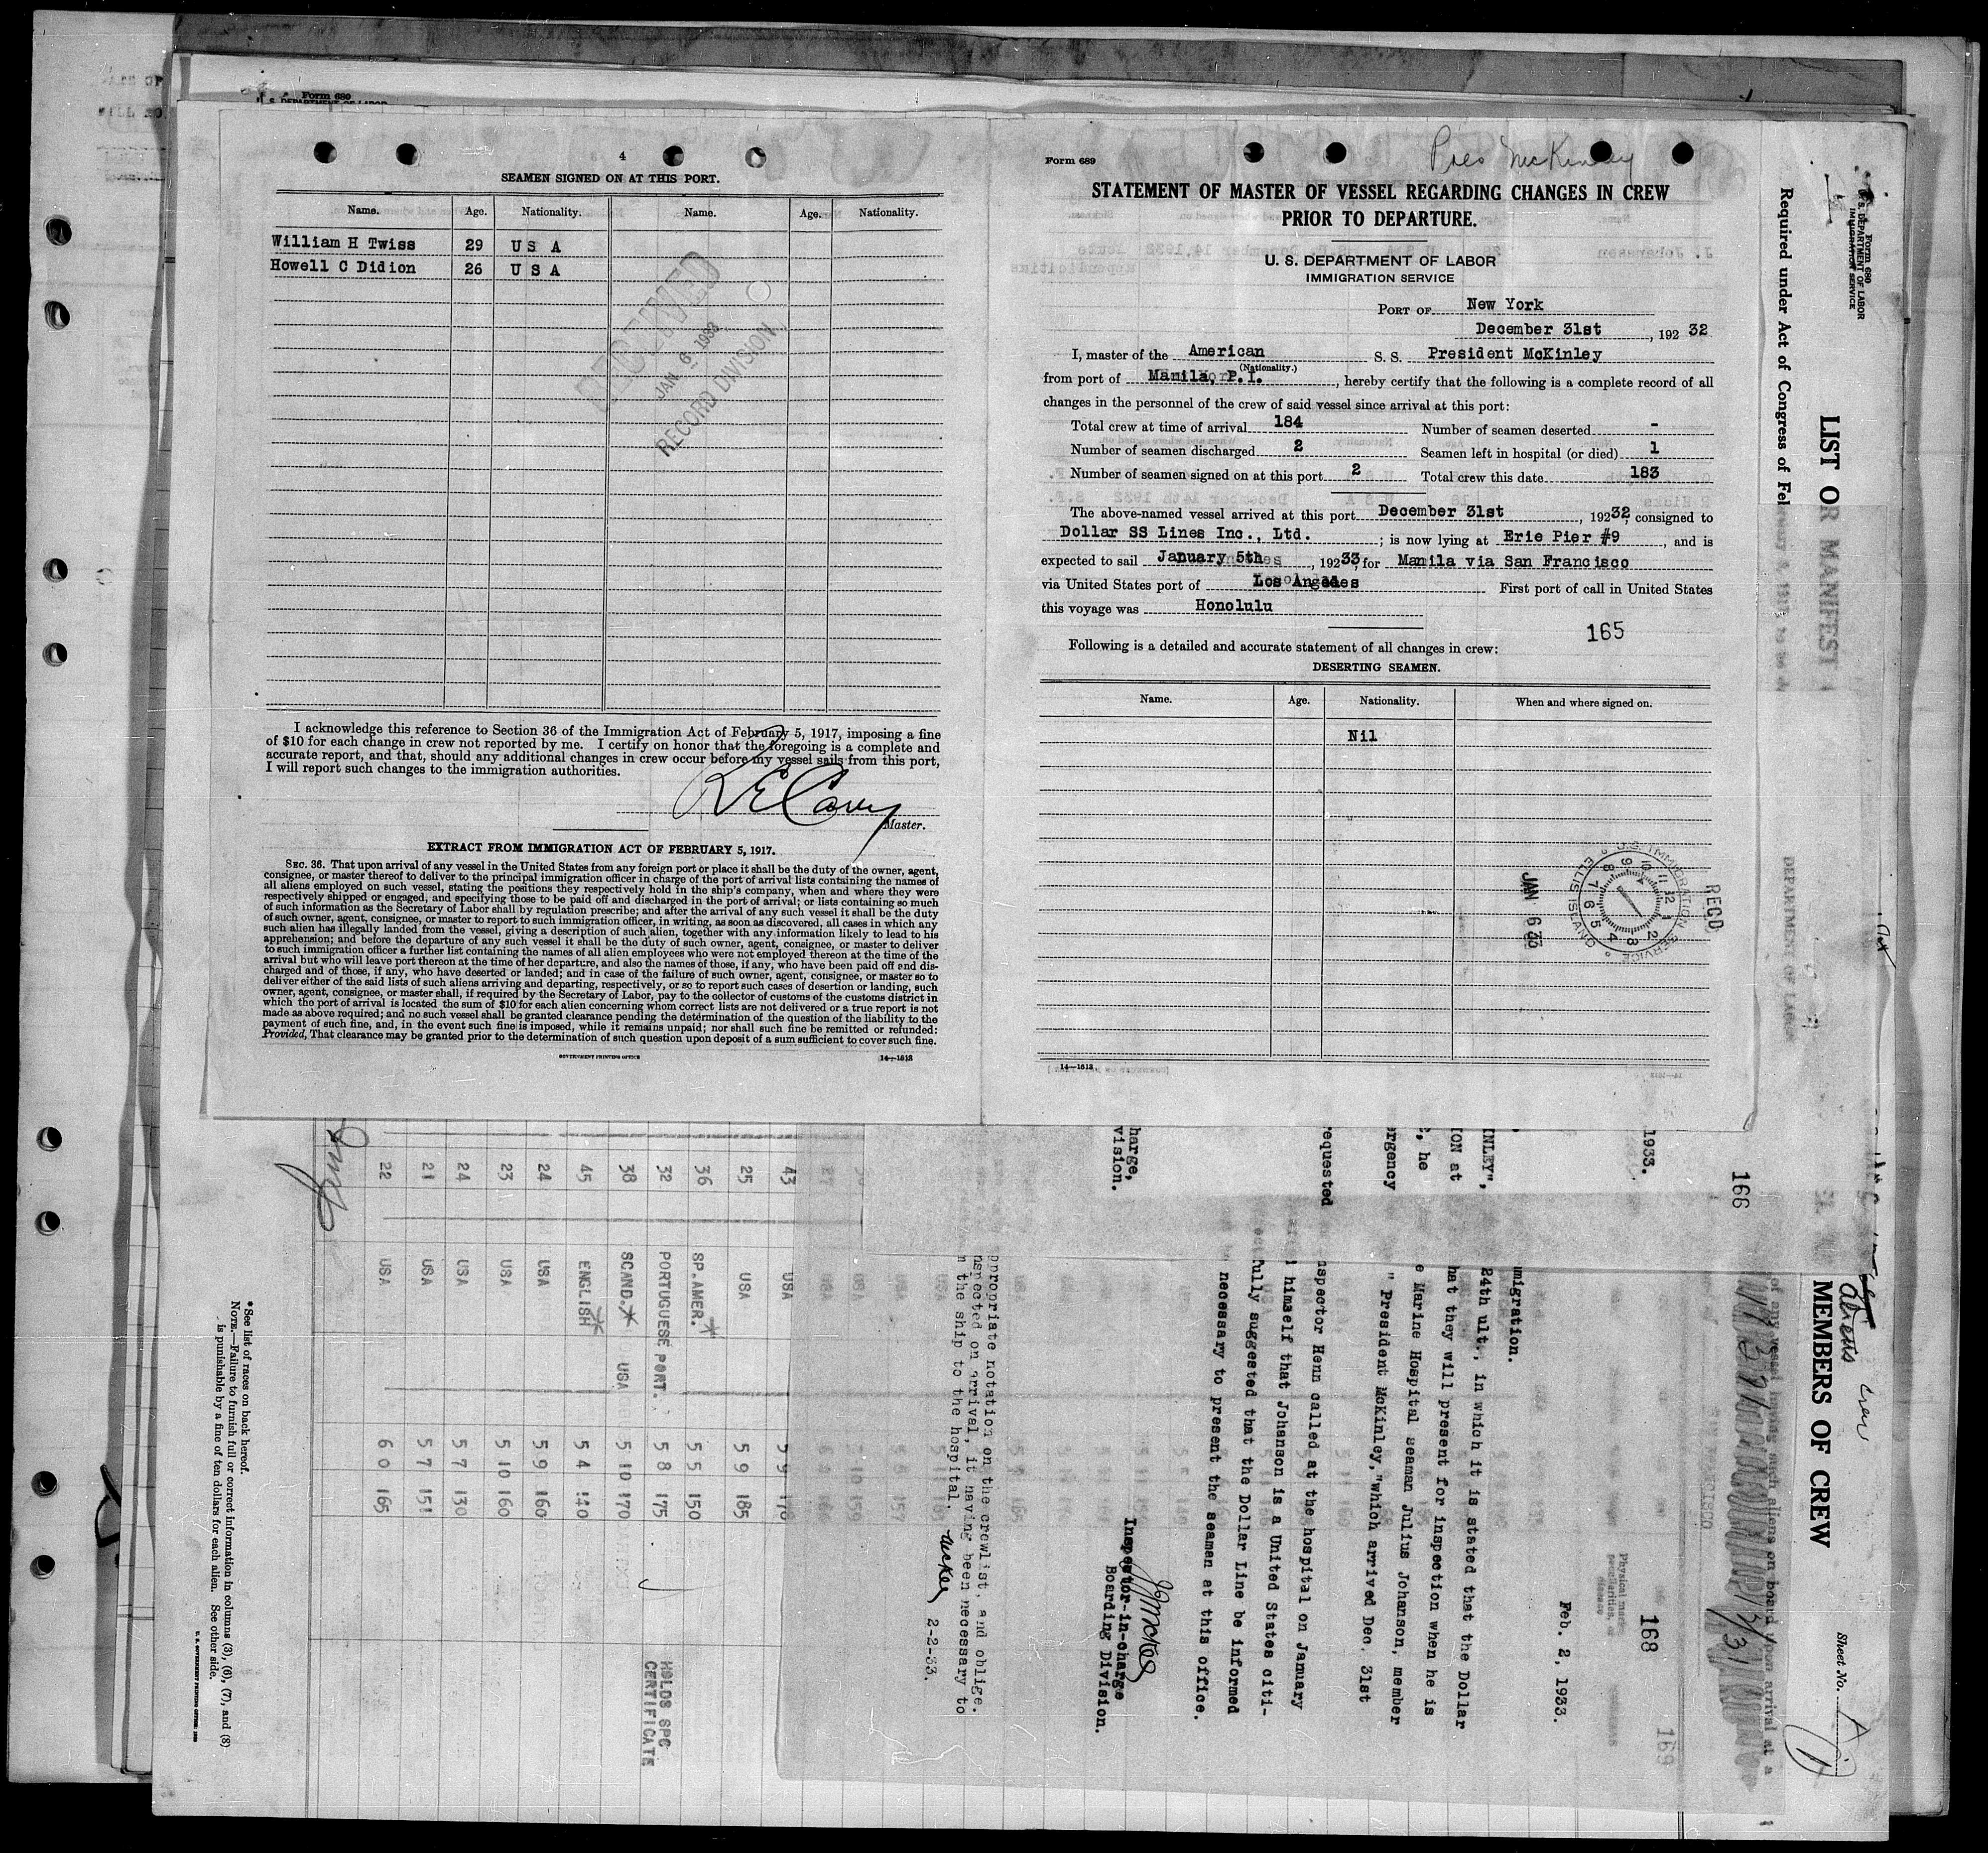 Form 689
4
SEAMEN SIGNED ON AT THIS PORT.
Name. Age. Nationality. Name. Age. Nationality.
William H Twiss 29 U S A
Howell C Didion 26 U S A
RECEIVED
JAN 6 1933
RECORD DIVISION
I acknowledge this reference to Section 36 of the Immigration Act of February 5, 1917, imposing a fine
of $10 for each change in crew not reported by me. I certify on honor that the foregoing is a complete and
accurate report, and that, should any additional changes in crew occur before my vessel sails from this port,
I will report such changes to the immigration authorities.
Master.
EXTRACT FROM IMMIGRATION ACT OF FEBRUARY 5, 1917.
SEC. 36. That upon arrival of any vessel in the United States from any foreign port or place it shall be the duty of the owner, agent,
consignee, or master thereof to deliver to the principal immigration officer in charge of the port of arrival lists containing the names of
all aliens employed on such vessel, stating the positions they respectively hold in the ship's company, when and where they were
respectively shipped or engaged, and specifying those to be paid off and discharged in the port of arrival; or lists containing so much
of such information as the Secretary of Labor shall by regulation prescribe; and after the arrival of any such vessel it shall be the duty
of such owner, agent, consignee, or master to report to such immigration officer, in writing, as soon as discovered, all cases in which any
such alien has illegally landed from the vessel, giving a description of such alien, together with any information likely to lead to his
apprehension; and before the departure of any such vessel it shall be the duty of such owner, agent, consignee, or master to deliver
to such immigration officer a further list containing the names of all alien employees who were not employed thereon at the time of the
arrival but who will leave port thereon at the time of her departure, and also the names of those, if any, who have been paid off and dis-
charged and of those, if any, who have deserted or landed; and in case of the failure of such owner, agent, consignee, or master so to
deliver either of the said lists of such aliens arriving and departing, respectively, or so to report such cases of desertion or landing, such
owner, agent, consignee, or master shall, if required by the Secretary of Labor, pay to the collector of customs of the customs district in
which the port of arrival is located the sum of $10 for each alien concerning whom correct lists are not delivered or a true report is not
made as above required; and no such vessel shall be granted clearance pending the determination of the question of the liability to the
payment of such fine, and, in the event such fine is imposed, while it remains unpaid; nor shall such fine be remitted or refunded:
Provided, That clearance may be granted prior to the determination of such question upon deposit of a sum sufficient to cover such fine.
GOVERNMENT PRINTING OFFICE 14—1613
Form 689
Pres McKinley
STATEMENT OF MASTER OF VESSEL REGARDING CHANGES IN CREW
PRIOR TO DEPARTURE.
U. S. DEPARTMENT OF LABOR
IMMIGRATION SERVICE
PORT OF New York
December 31st, 192 32
I, master of the American S. S. President McKinley
(Nationality.)
from port of Manila, P.I., hereby certify that the following is a complete record of all
changes in the personnel of the crew of said vessel since arrival at this port:
Total crew at time of arrival 184 Number of seamen deserted -
Number of seamen discharged 2 Seamen left in hospital (or died) 1
Number of seamen signed on at this port 2 Total crew this date 183
The above-named vessel arrived at this port December 31st, 192 32, consigned to
Dollar SS Lines Inc., Ltd.; is now lying at Erie Pier #9, and is
expected to sail January 5th, 192 33, for Manila via San Francisco
via United States port of Los Angeles First port of call in United States
this voyage was Honolulu
165
Following is a detailed and accurate statement of all changes in crew:
DESERTING SEAMEN.
Name. Age. Nationality. When and where signed on.
Nil
JAN 6 33
U.S. IMMIGRATION SERVICE
ELLIS ISLAND
RECD
14—1613
Form 680
U. S. DEPARTMENT OF LABOR
IMMIGRATION SERVICE
Required under Act of Congress of Fe
LIST OR MANIFEST
MEMBERS OF CREW
aliens crew
Sheet No.
1933.
166
INLEY",
ION at
, he
ergency
equested
harge,
vision.
168
169
Feb. 2, 1933.
migration.
24th ult., in which it is stated that the Dollar
hat they will present for inspection when he is
e Marine Hospital seaman Julius Johanson, member
" President McKinley, "which arrived Dec. 31st
nspector Henn called at the hospital on January
himself that Johanson is a United States citi-
fully suggested that the Dollar Line be informed
necessary to present the seaman at this office.
Inspector-in-charge
Boarding Division.
ppropriate notation on the crewlist, and oblige.
nspected on arrival, it having been necessary to
n the ship to the hospital.
2-2-33.
43 USA
25 USA 5 9 185
36 SP.AMER. 5 5 150
32 PORTUGUESE PORT. 5 8 175 HOLDS SPC CERTIFICATE
38 SCAND. USA 5 10 170
45 ENGLISH 5 4 140
24 USA 5 9 160
23 USA 5 10 160
24 USA 5 7 130
21 USA 5 7 151
22 USA 6 0 165
*See list of races on back hereof.
NOTE.—Failure to furnish full or correct information in columns (3), (6), (7), and (8)
is punishable by a fine of ten dollars for each alien. See other side.